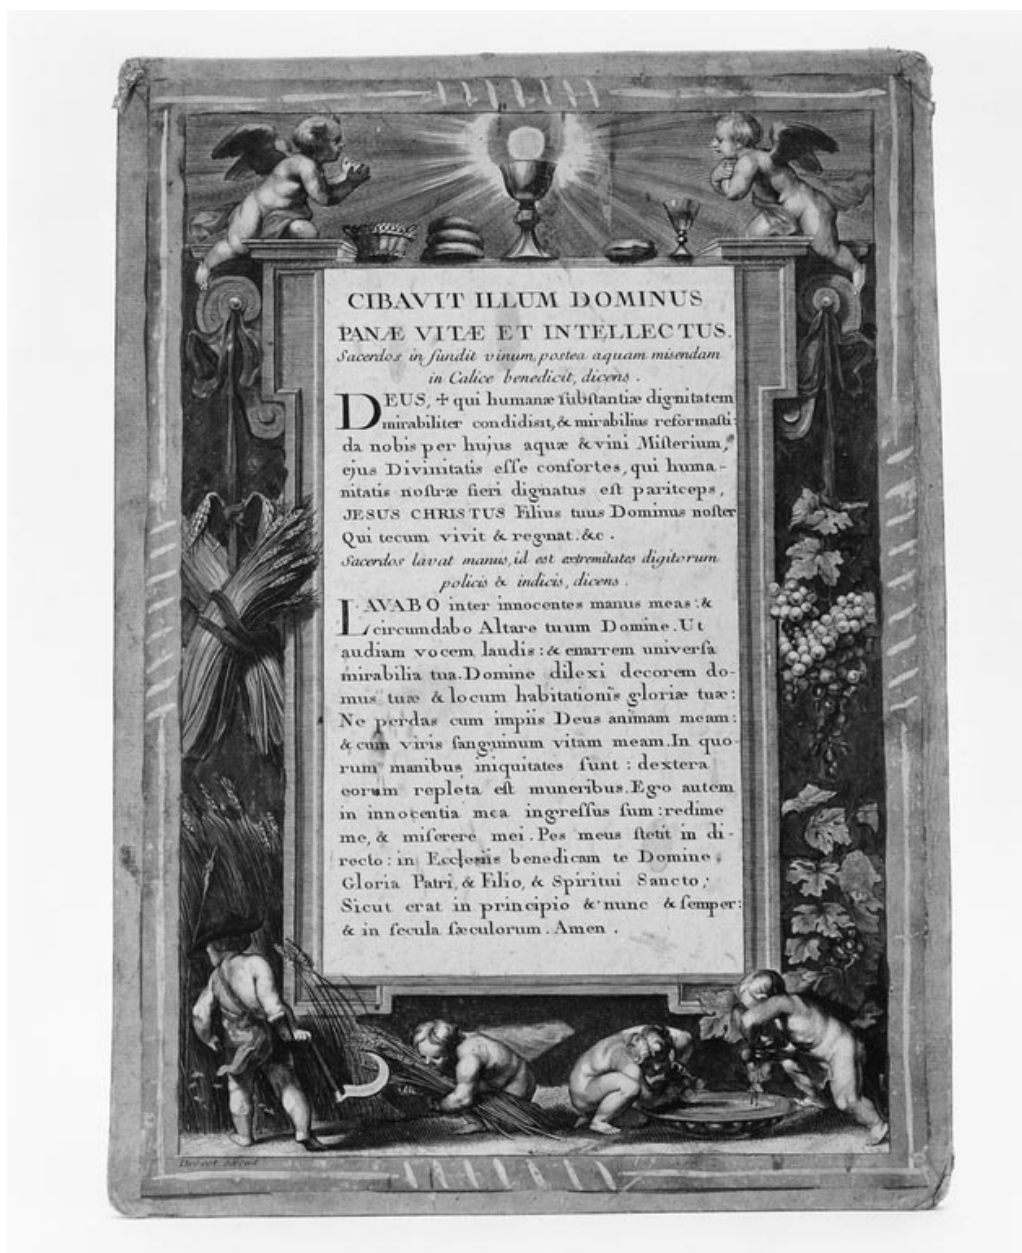 CIBAVIT ILLUM DOMINUS
PANÆ VITÆ ET INTELLECTUS.
Sacerdos in fundit vinum, postea aquam misendam
in Calice benedicit, dicens .
DEUS, ✢ qui humanæ ſubſtantiæ dignitatem
mirabiliter condidisti, & mirabilius reformaſti:
da nobis per hujus aquæ & vini Miſterium,
ejus Divinitatis eſſe conſortes, qui huma-
nitatis noſtræ fieri dignatus eſt pariteeps,
JESUS CHRISTUS Filius tuus Dominus noſter
Qui tecum vivit & regnat. &c .
Sacerdos lavat manus, id est extremitates digitorum
policis & indicis, dicens .
LAVABO inter innocentes manus meas : &
circumdabo Altare tuum Domine. Ut
audiam vocem laudis : & enarrem univerſa
mirabilia tua. Domine dilexi decorem do-
mus tuæ & locum habitationis gloriæ tuæ :
Ne perdas cum impiis Deus animam meam :
& cum viris ſanguinum vitam meam. In quo-
rum manibus iniquitates ſunt : dextera
eorum repleta eſt muneribus. Ego autem
in innocentia mea ingreſſus ſum : redime
me, & miſerere mei. Pes meus ſtetit in di-
recto : in Eccleſiis benedicam te Domine.
Gloria Patri, & Filio, & Spiritui Sancto ;
Sicut erat in principio & nunc & ſemper :
& in ſecula ſæculorum. Amen .